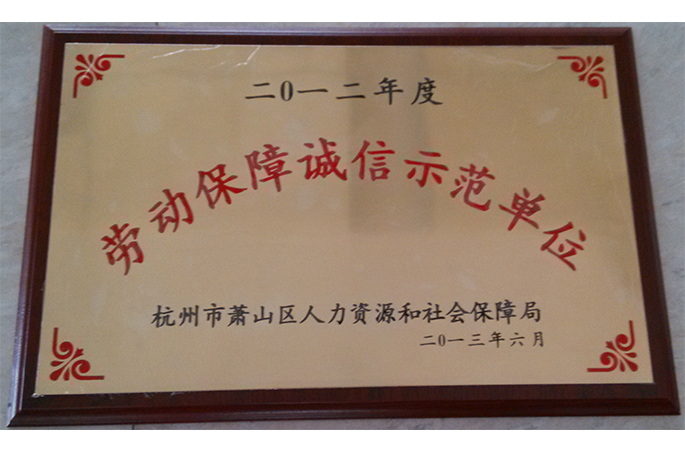 二0一二年度
劳动保障诚信示范单位
杭州市萧山区人力资源和社会保障局
二0一三年六月